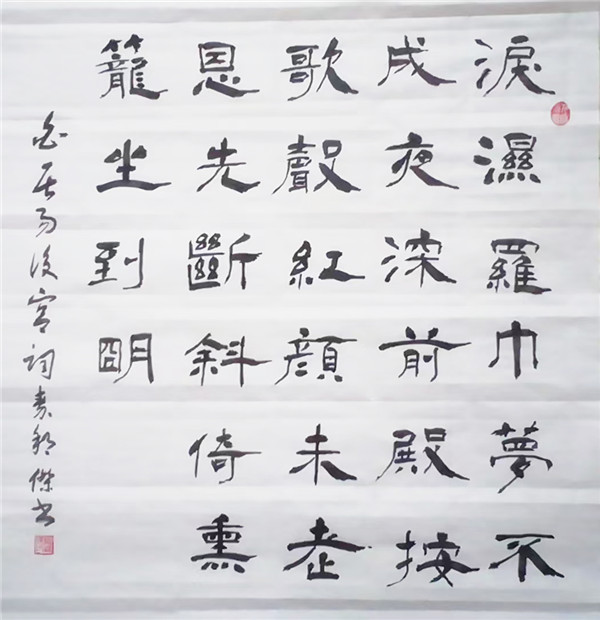 淚濕羅巾夢不
成夜深前殿按
歌聲紅顏未老
恩先斷斜倚熏
籠坐到朙
白居易後宮詞 傑书